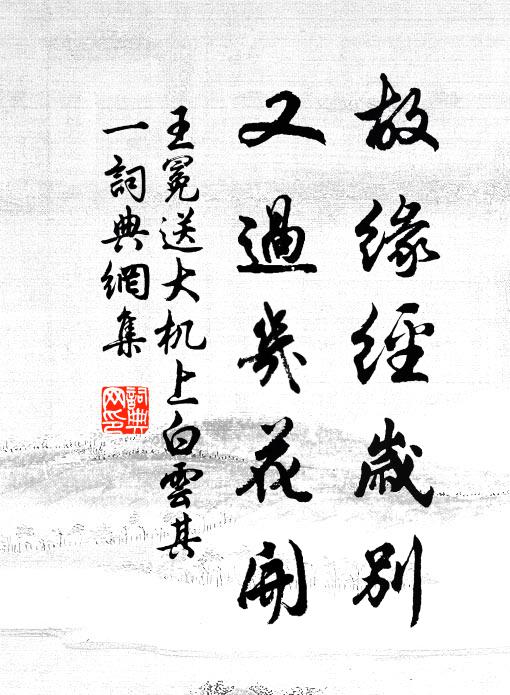 故緣經歲別
又過幾花開
王冕送大机上白雲其
一詞典網集
詞典
网印